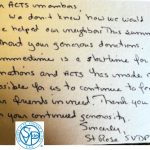 ACTS members,
We don't know how we would
helped our neighbors this summer
without your generous donations.
Summertime is a shortage for
donations and ACTS has made it
possible for us to continue to feed
our friends in need. Thank you
for your continued generosity.
Sincerely,
St Rose SVDP